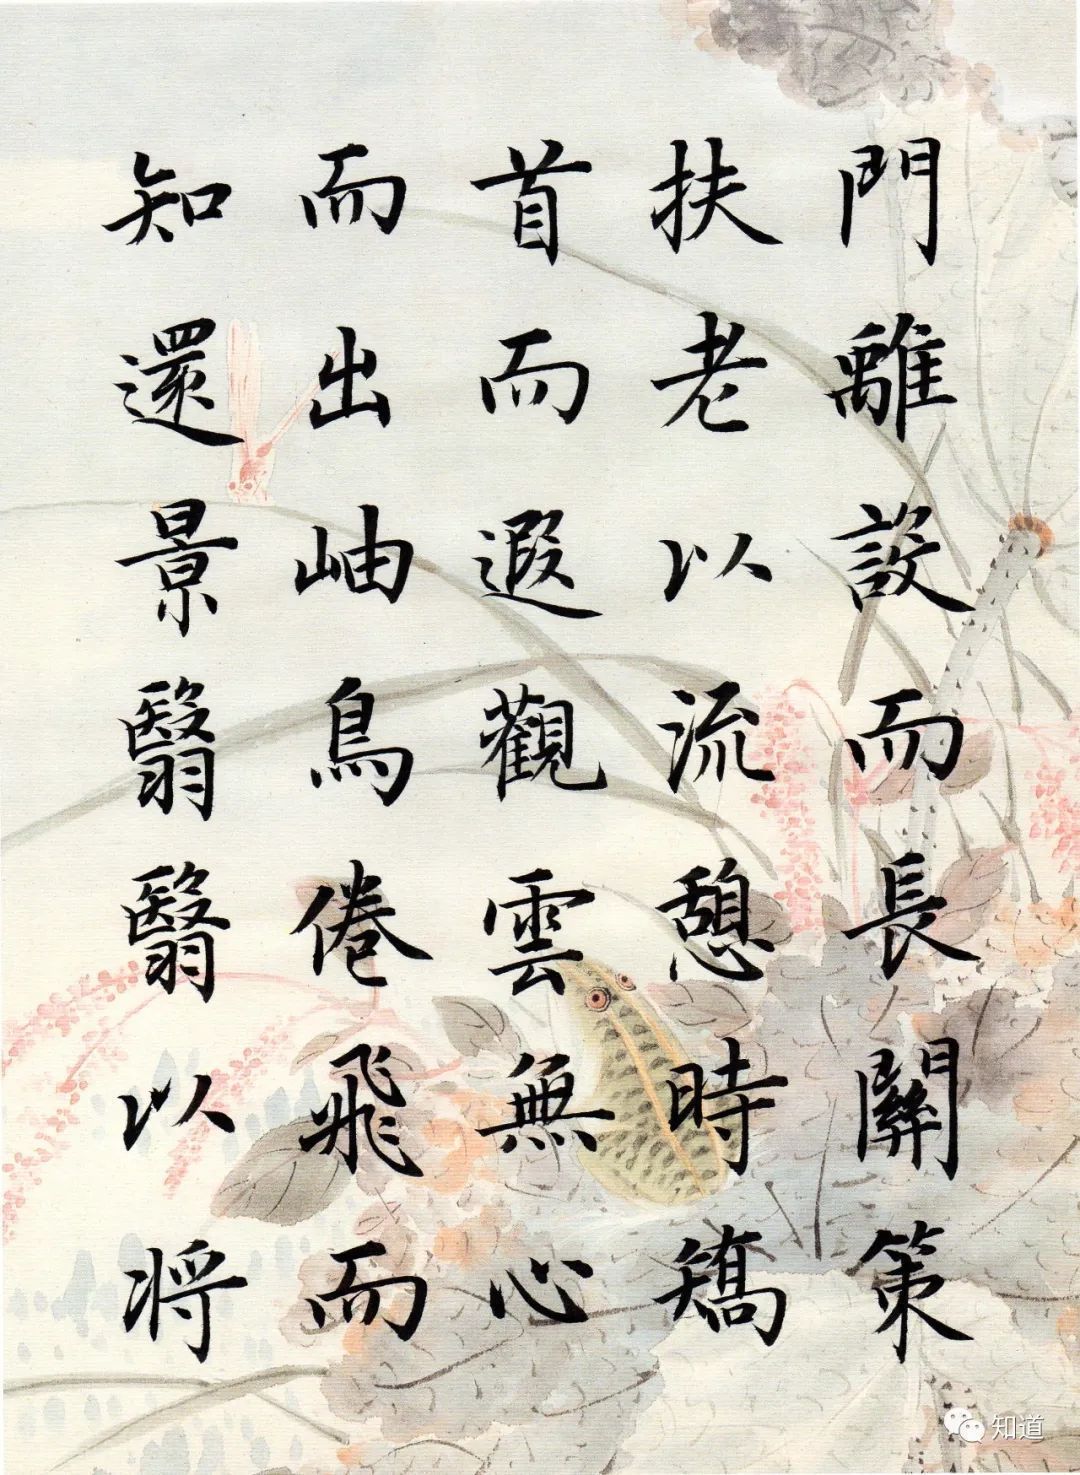 門離設而長關策
扶老以流憩時矯
首而遐觀雲無心
而出岫鳥倦飛而
知還景翳翳以將
知道